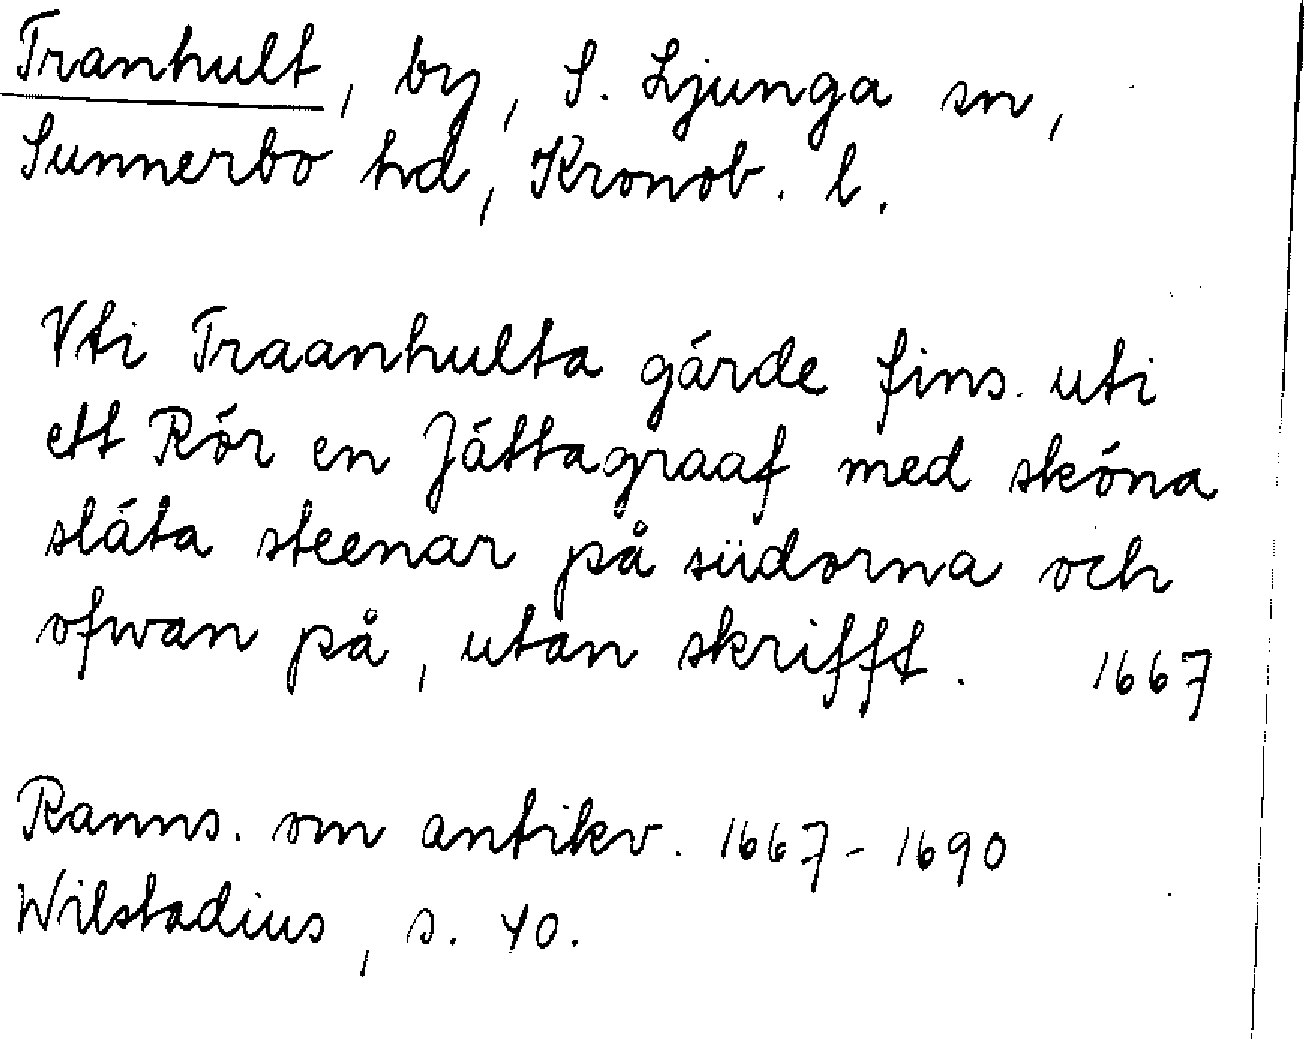 Tranhult, by, S. Ljunga sn,
Sunnerbo hd, Kronob. l.
Vti Traanhulta gárde fins. uti
ett Rór en Játtagraaf med skóna
sláta steenar på südorna och
ofwan på, utan skrifft. 1667
Ranns. om antikv. 1667-1690
Wilstadius, s. 40.